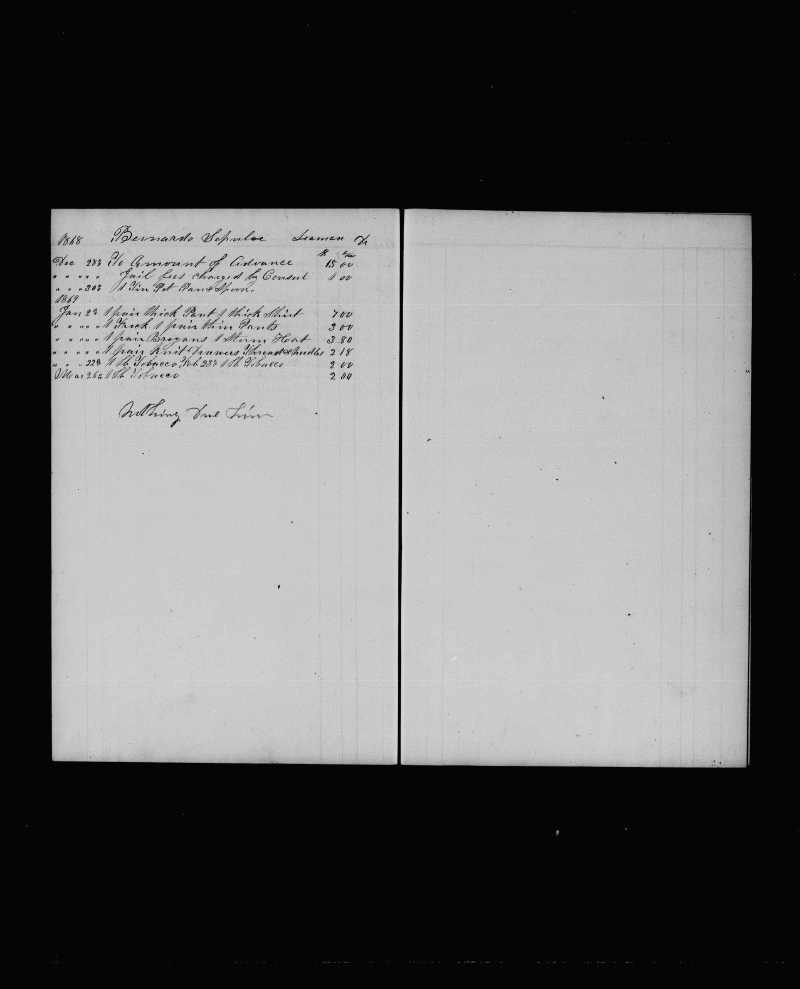 1868 Bernardo Sepulve Seaman Dr
$ cts
Dec 28th To Amount of Advance 15 00
" " " " " Jail fees charged by Consul 1 00
" " " 30th 1 Tin Pot Pan & Spoon
1869
Jan 2d 1 pair thick Pant 1 thick Shirt 7 00
" " " " " 1 Frock 1 pair thin Pants 3 00
" " " " " 1 pair Brogans 1 Hat 3 80
" " " " " 1 pair Knit Drawers Thread & Needles 2 18
" " " 22d 1 lb Tobacco Feb 23d 1 lb Tobacco 2 00
Mar 1 lb Tobacco 2 00
Nothing Due Him